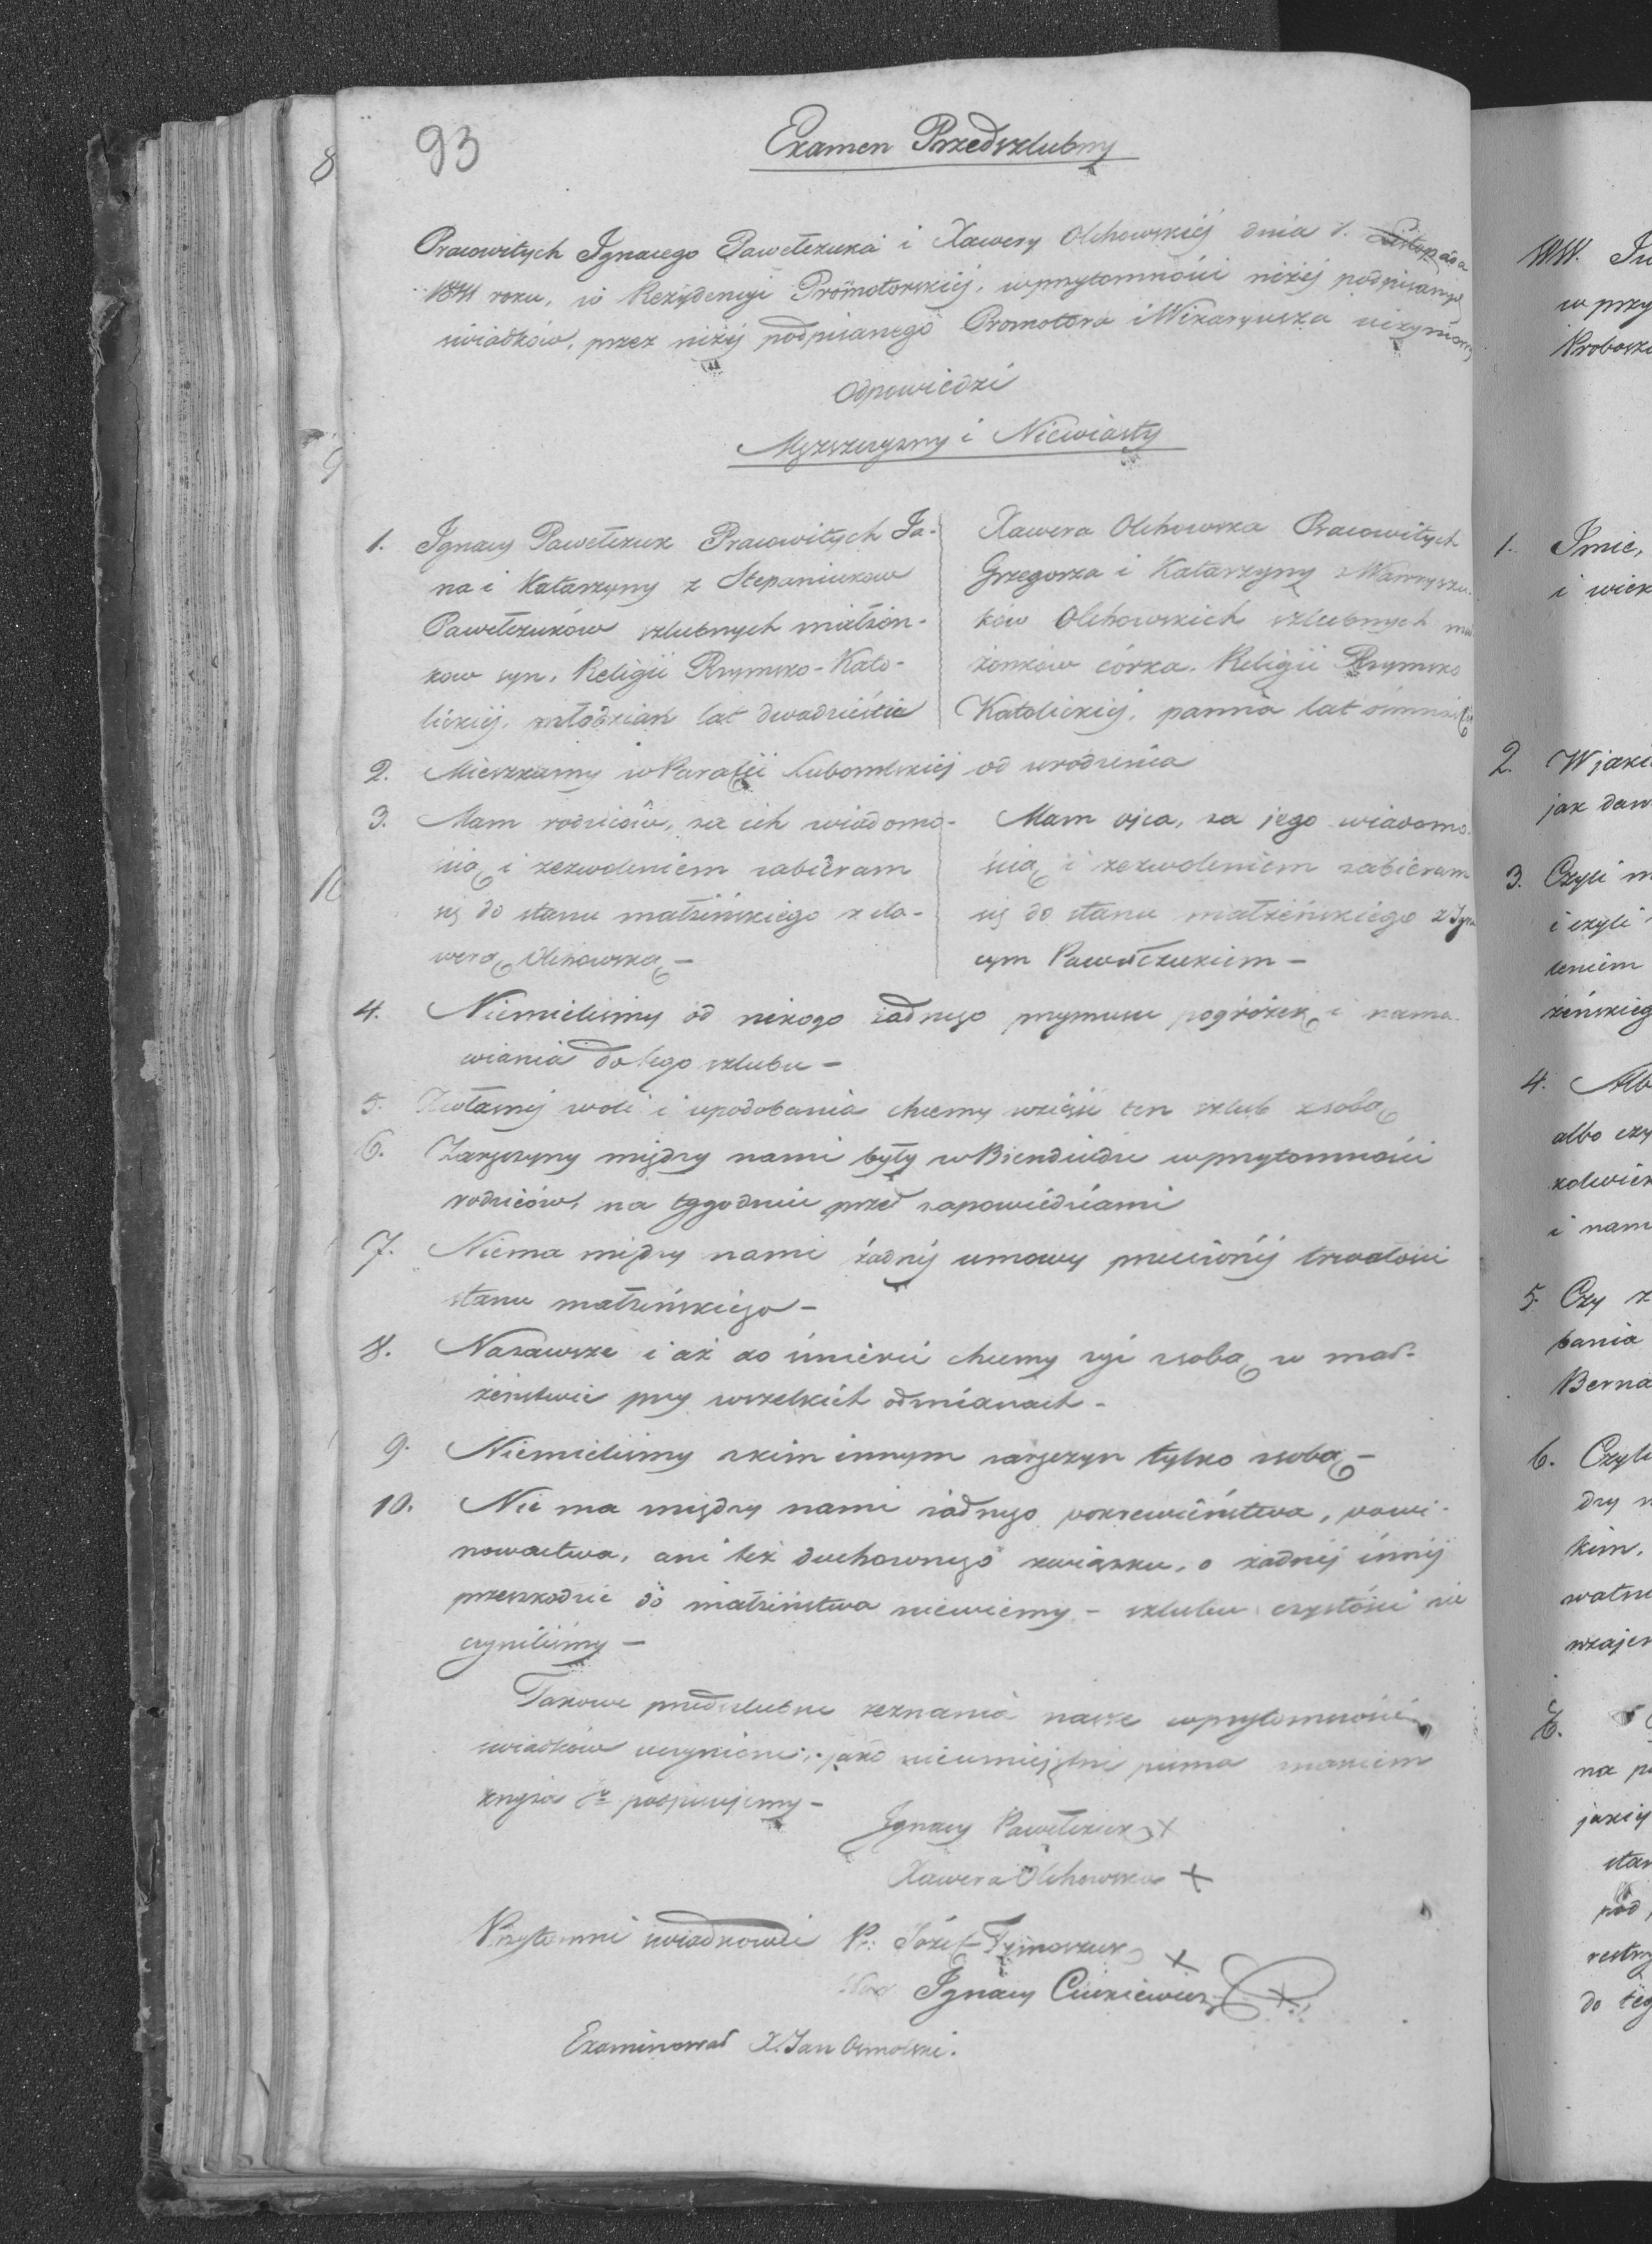 93
Examen Przedszlubny
Pracowitych Ignacego Pawełczuka i Xawery Olchowskiéj dnia 1. Listopada
1841 roku, w Rezydencyi Promotorskiéj, wprzytomności niżéj podpisanych
świadków, przez niżéj podpisanego Promotora i Wikaryusza uczyniony
Odpowiedzi
Męzszczyzny i Niewiasty
1. Ignacy Pawełczuk Pracowitych Ja-
na i Katarzyny z Stepaniukow
Pawełczuków szlubnych małżon-
kow syn, Religii Rzymsko-Kato-
lickiéj, młodzian lat dwadzieścia
Xawera Olchowska Pracowitych
Grzegorza i Katarzyny z Wawryszu-
ków Olchowskich szlubnych mał
żonków córka. Religii Rzymsko
Katolickiéj, panna lat ośmnaście
2. Mieszkamy w Parafii Lubomlskiéj od urodzenia
3. Mam rodziców, za ich wiadomo-
ścią i zezwoleniem zabieram
się do stanu małżeńskiego z Xa-
werą Olchowską -
Mam ojca, za jego wiadomo-
ścią i zezwoleniem zabieram
się do stanu małżeńskiego z Igna
cym Pawełczukiem -
4. Niemieliśmy od nikogo żadnego przymusu pogróżek i nama-
wiania do tego szlubu -
5. Zwłasnej woli i upodobania chcemy wziąść ten szlub z sobą
6. Zaręczyny między nami były w Biendiudze wprzytomności
rodziców, na tygodniu przed zapowiedziami
7. Niema między nami żadnéj umowy przeciwnéj trwałości
stanu małżeńskiego -
8. Nazawsze i aż do śmierci chcemy żyć zsobą w mał-
żeństwie przy wszelkich odmianach -
9. Niemieliśmy zkim innym zaręczyn tylko zsobą -
10. Nie ma między nami żadnego pokrewieństwa, powi-
nowactwa, ani też duchownego związku, o żadnéj innéj
przeszkodzie do małżeństwa niewiemy - szlubu czystości nie
czyniliśmy -
Takowe przedszlubne zeznania nasze wprzytomności
świadków uczynione, jako nieumiejętni pisma znakiem
krzyża Śgo podpisujemy -
Ignacy Pawełczuk X
Xawera Olchowska X
Przytomni świadkowie P. Józef Tymoszuk X
Ignacy Ciukiewicz
Examinował X. Jan Osmolski.